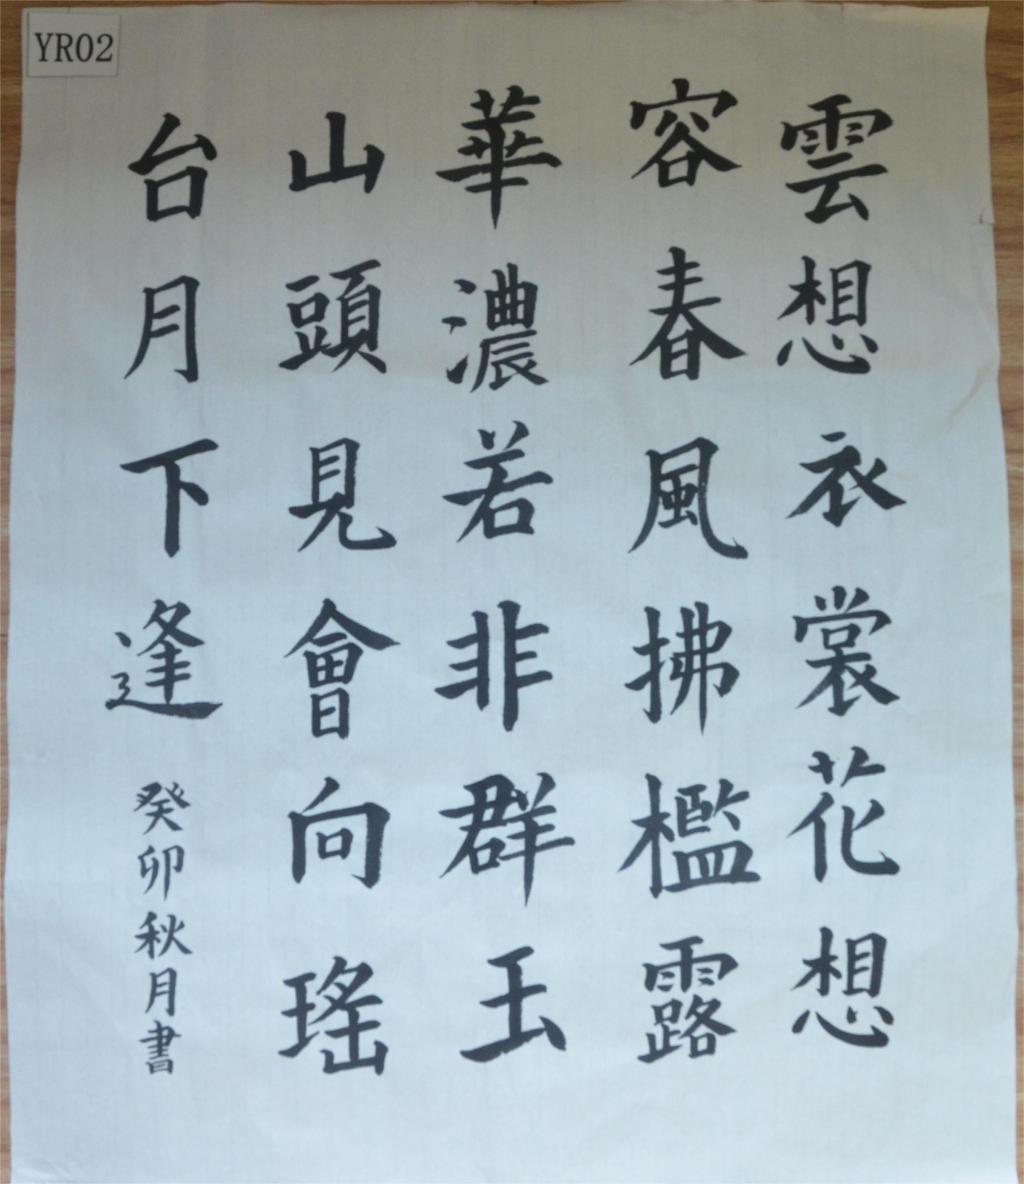 YR02
雲想衣裳花想
容春風拂檻露
華濃若非群玉
山頭見會向瑤
台月下逢
癸卯秋月書